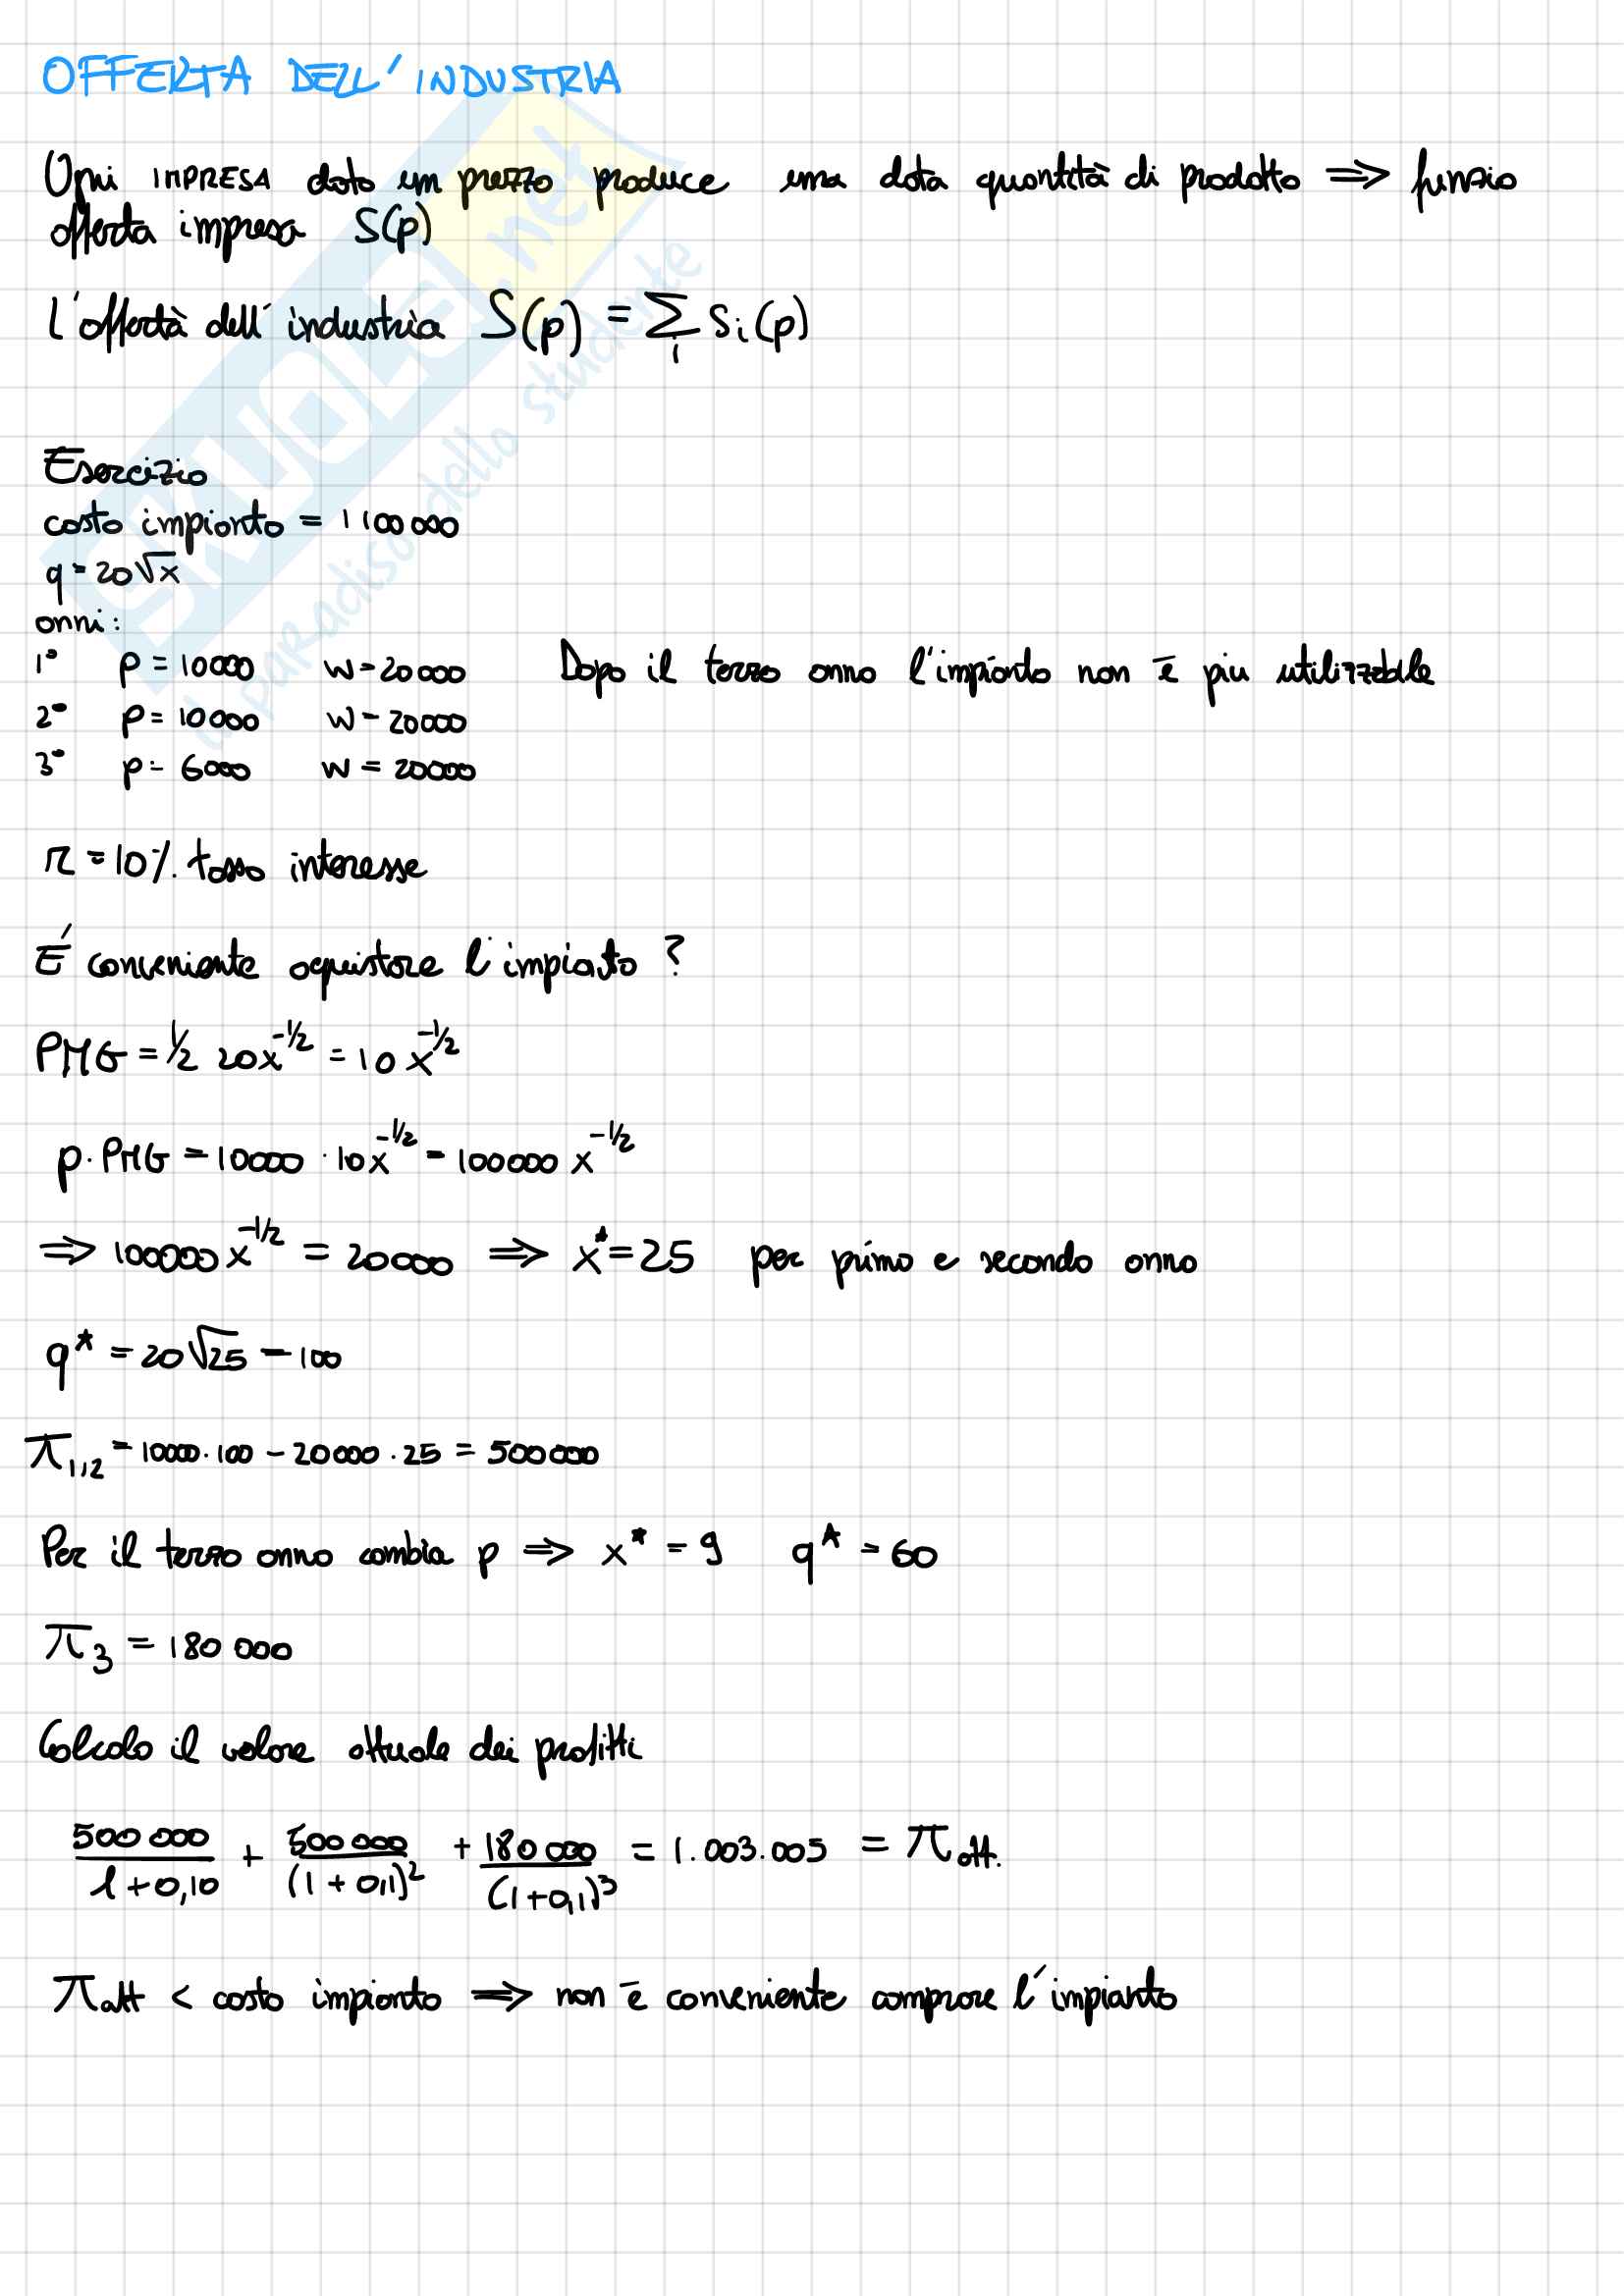 OFFERTA DELL' INDUSTRIA
Ogni IMPRESA dato un prezzo produce una data quantità di prodotto ⇒ funzio
offerta impresa S(p)
L'offertà dell' industria S(p) = ∑i Si(p)
Esercizio
costo impianto = 1100000
q = 20√x
anni:
1° p = 10000 w = 20000 Dopo il terzo anno l'impianto non è piu utilizzabile
2° p = 10000 w = 20000
3° p = 6000 w = 20000
r = 10% tasso interesse
É conveniente aquistare l'impiato ?
PMG = 1/2 20x^-1/2 = 10 x^-1/2
p · PMG = 10000 · 10x^-1/2 = 100000 x^-1/2
⇒ 100000 x^-1/2 = 20000 ⇒ x* = 25 per primo e secondo anno
q* = 20√25 = 100
π1,2 = 10000 · 100 - 20000 · 25 = 500000
Per il terzo anno cambia p ⇒ x* = 9 q* = 60
π3 = 180 000
Calcolo il valore attuale dei profitti
500 000/(1+0,10) + 500 000/(1+0,1)^2 + 180 000/(1+0,1)^3 = 1.003.005 = π att.
π att < costo impianto ⇒ non è conveniente comprare l'impianto
SKUOLA.net
il paradiso dello studente